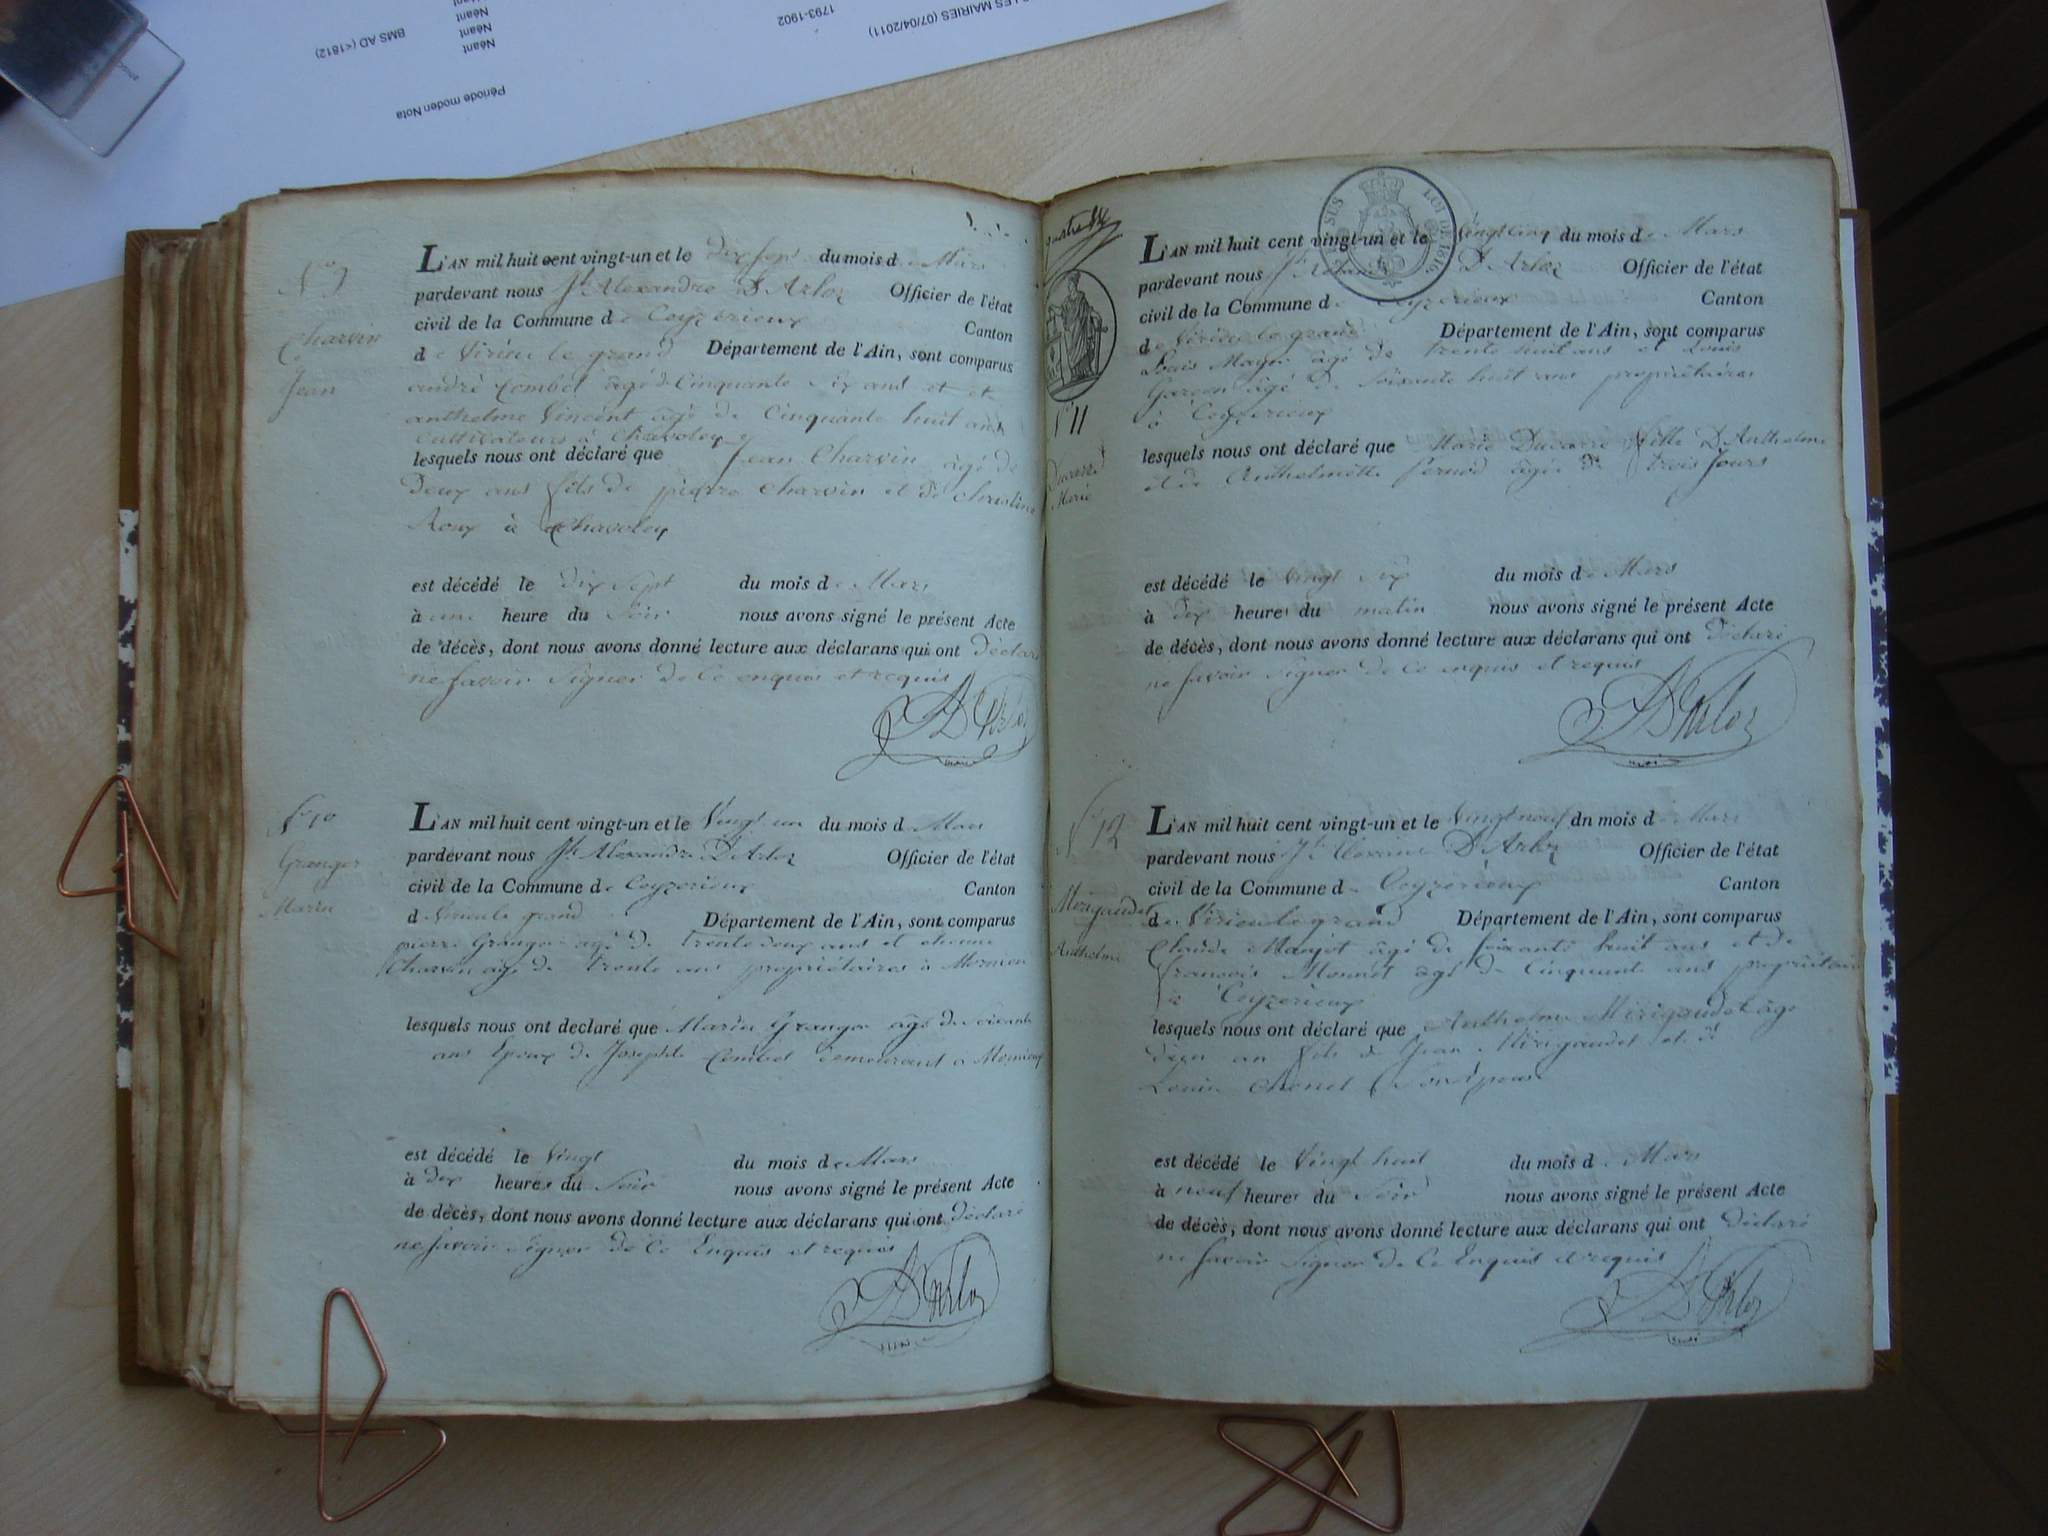 LES MAIRIES (07/04/2011)
1793-1902
BMS AD (<1812)
Néant
Néant
Néant
Période moden Nota
N° 9
Charvin
Jean
L'AN mil huit cent vingt-un et le dix sept du mois de Mars
pardevant nous Jh Alexandre D'Arloz Officier de l'état
civil de la Commune de Ceyzerieux Canton
de Virieu le grand Département de l'Ain, sont comparus
andré Combet âgé de Cinquante Six ans et et
anthelme Vincent âgé de Cinquante huit ans
Cultivateurs à Chavoley
lesquels nous ont déclaré que Jean Charvin âgé de
Deux ans fils de pierre Charvin et de Christine
Roux à Chavoley
est décédé le dix Sept du mois de Mars
à une heure du Soir nous avons signé le présent Acte
de décès, dont nous avons donné lecture aux déclarans qui ont déclaré
ne Savoir Signer de Ce enquis et requis
D'Arloz
N° 10
Granger
Marin
L'AN mil huit cent vingt-un et le Vingt un du mois de Mars
pardevant nous Jh Alexandre D'Arloz Officier de l'état
civil de la Commune de Ceyzerieux Canton
d Virieu le grand Département de l'Ain, sont comparus
pierre Granger âgé de trente deux ans et etienne
Charvin âgé de trente ans propriétaires à Mornieu
lesquels nous ont declaré que Marin Granger âgé de
ans Epoux de Josephte Combet demeurant a Mornieux
est décédé le Vingt du mois de Mars
à dix heures du Soir nous avons signé le présent Acte
de décès, dont nous avons donné lecture aux déclarans qui ont déclaré
ne Savoir Signer de Ce Enquis et requis
D'Arloz
SUS
LOI DE 1816
N° 11
Ducarre
Marie
L'AN mil huit cent vingt-un et le Vingt Cinq du mois de Mars
pardevant nous Jh D'Arloz Officier de l'état
civil de la Commune de Ceyzerieux Canton
de Virieu le grand Département de l'Ain, sont comparus
Louis Magnin âgé de trente huit ans et Louis
Garcon âgé de Soixante huit ans propriétaires
à Ceyzerieux
lesquels nous ont déclaré que Marie Ducarre fille D'Anthelme
et de Anthelmette âgée de trois Jours
est décédé le Vingt Six du mois de Mars
à dix heures du matin nous avons signé le présent Acte
de décès, dont nous avons donné lecture aux déclarans qui ont déclaré
ne Savoir Signer de Ce enquis et requis
D'Arloz
N° 12
Merigaudet
Anthelme
L'AN mil huit cent vingt-un et le Vingt neuf dn mois d Mars
pardevant nous Jh Alexandre D'Arloz Officier de l'état
civil de la Commune de Ceyzerieux Canton
de Virieu le grand Département de l'Ain, sont comparus
Claude Manjot âgé de Soixante huit ans et de
francois Monnet âgé de Cinquante ans propriétaires
à Ceyzerieux
lesquels nous ont déclaré que Anthelme Mérigaudet âgé
un fils de Jean Mérigaudet et de
Louise Chenel Son Epouse
est décédé le Vingt huit du mois d Mars
à neuf heures du Soir nous avons signé le présent Acte
de décès, dont nous avons donné lecture aux déclarans qui ont déclaré
ne Savoir Signer de Ce Enquis et requis
D'Arloz